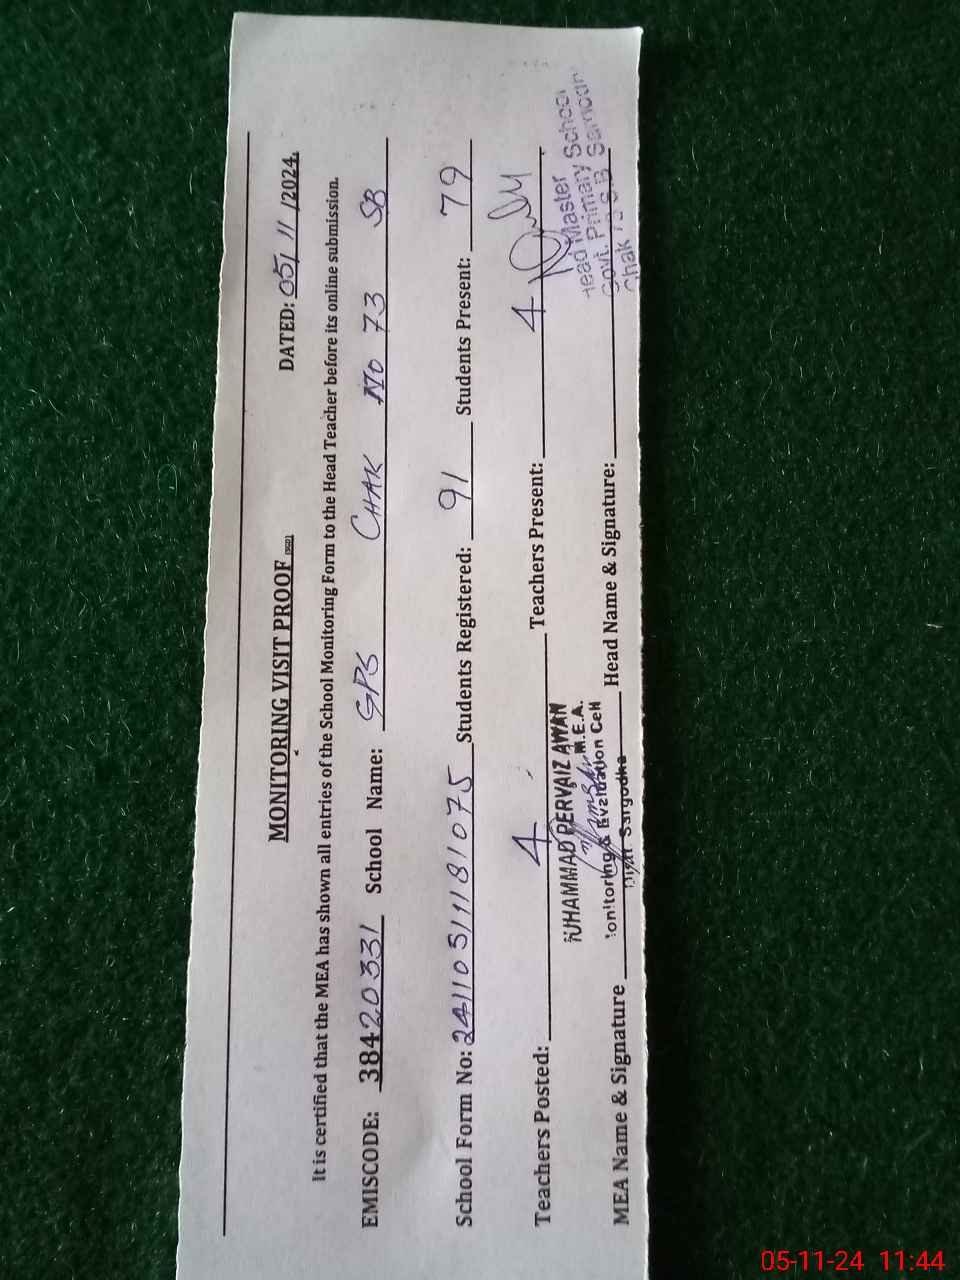 MONITORING VISIT PROOF (SGD)
DATED: 05/11/2024.
It is certified that the MEA has shown all entries of the School Monitoring Form to the Head Teacher before its online submission.
EMISCODE: 38420331 School Name: GPS CHAK NO 73 SB
School Form No: 24110511181075 Students Registered: 91 Students Present: 79
Teachers Posted: 4 Teachers Present: 4
MUHAMMAD PERVAIZ AWAN
M.E.A.
Monitoring & Evaluation Cell
Distt. Sargodha
MEA Name & Signature Head Name & Signature:
Head Master
Govt. Primary School
Chak
05-11-24 11:44